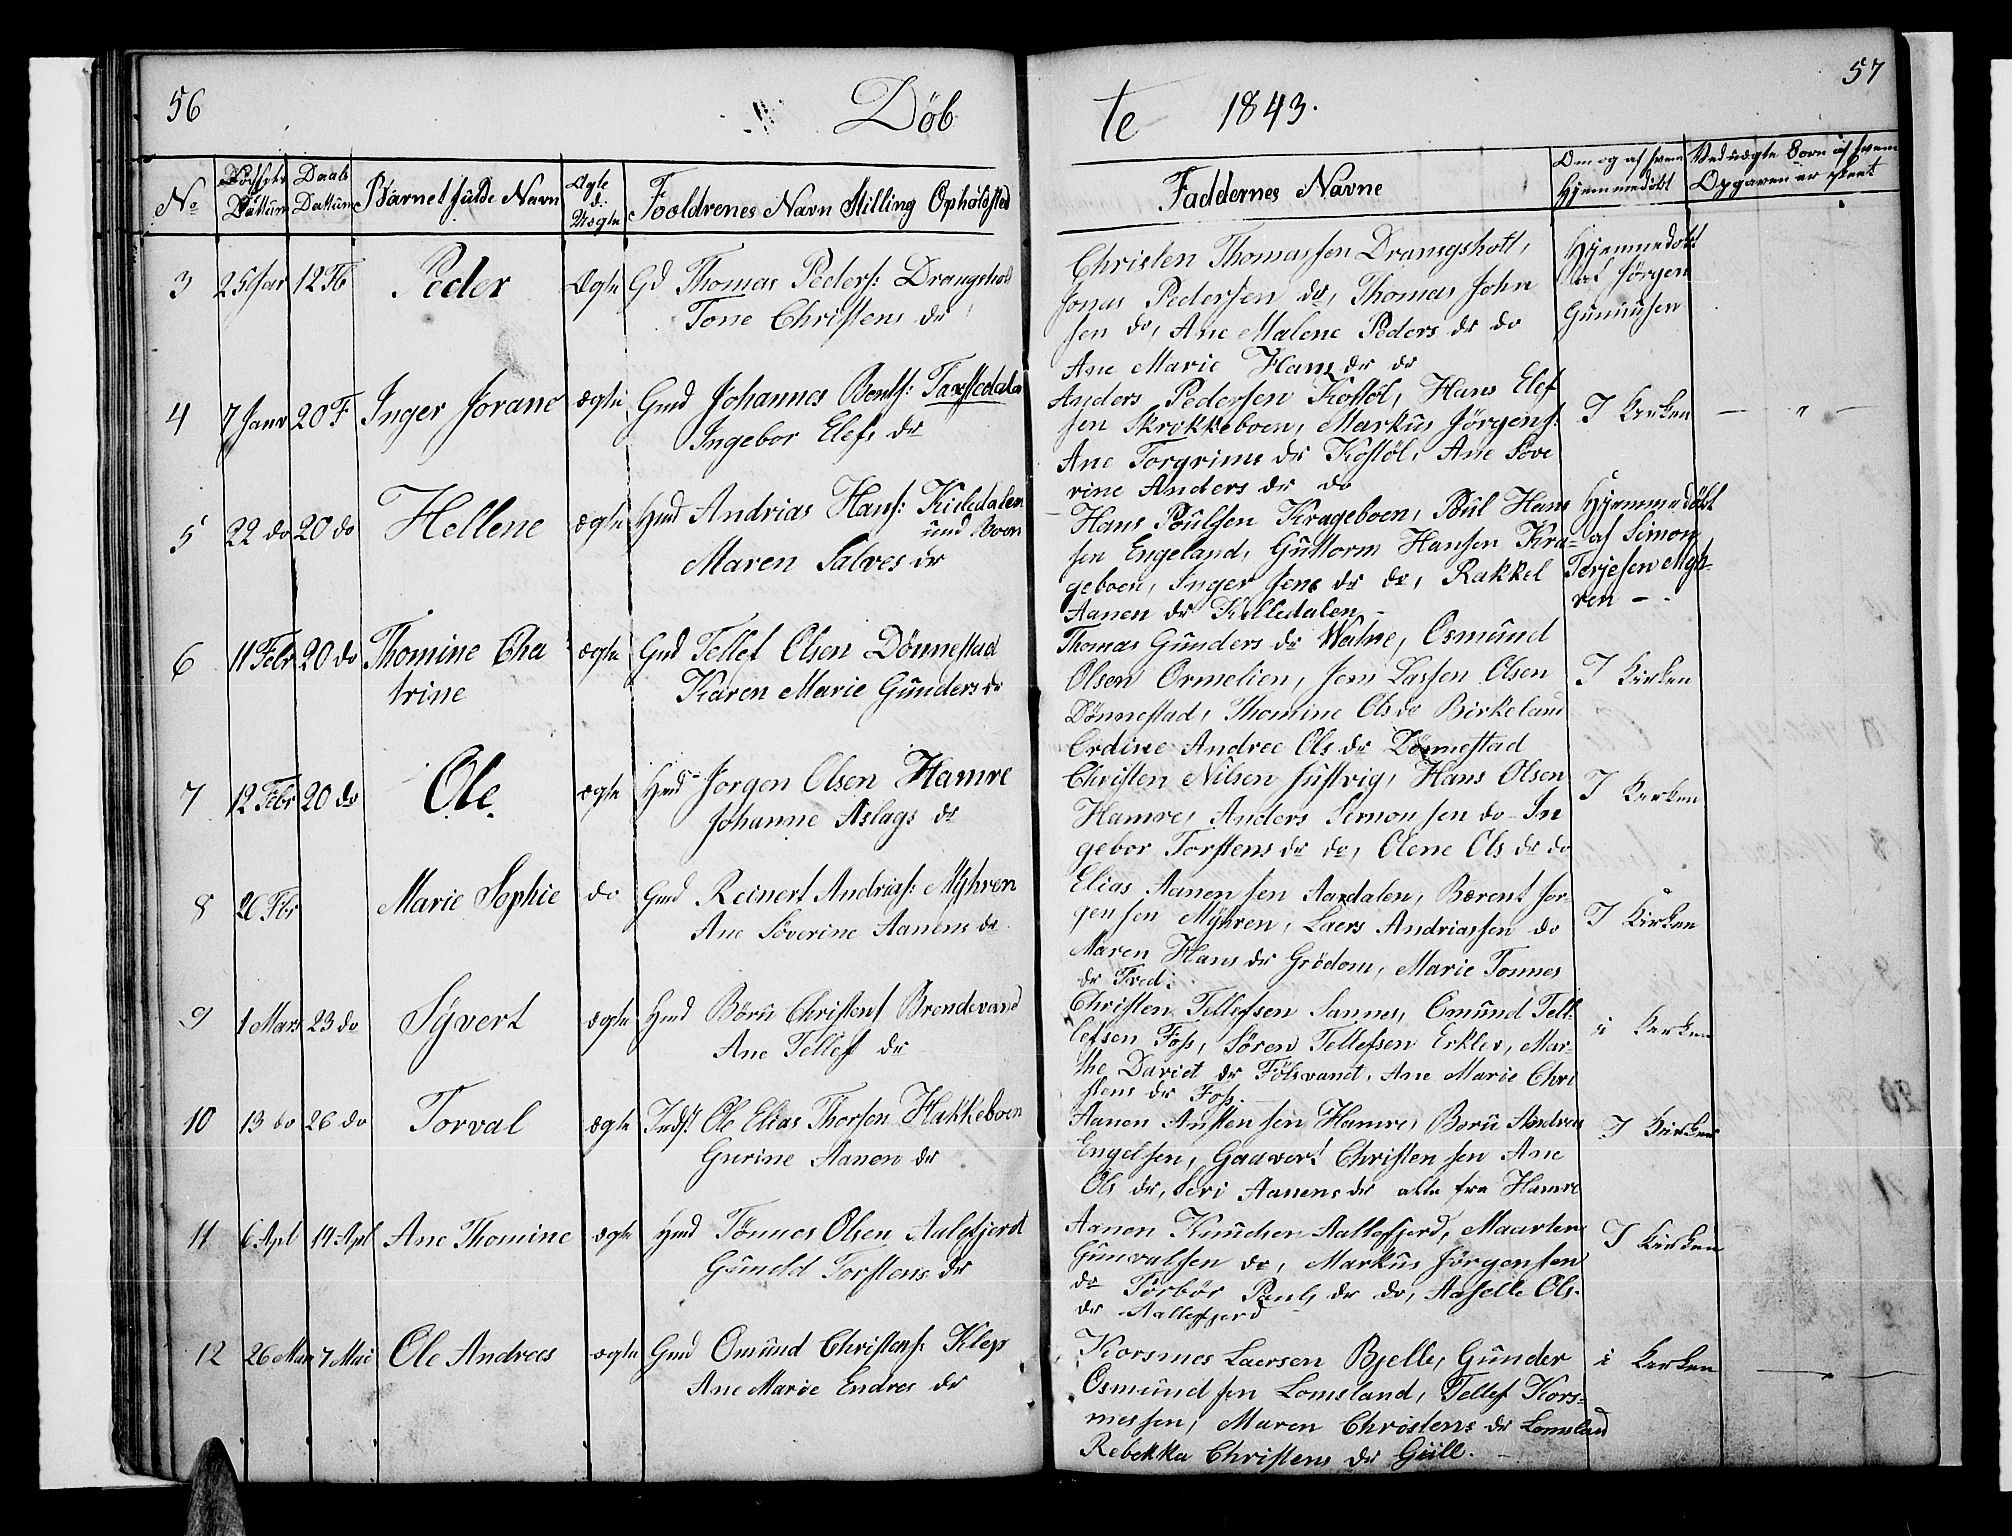 56
Döb
te 1843.
57
No
Dattum
Daabs Dattum
Barnet fulde Navn
Ægte d. Uægte
Forældrenes Navn Stilling Opholdsted
Faddernes Navne
Om og af hvem Hjemmedöbt
Ved uægte Börn af hvem Opgaven er skeet
3 25 Jar 12 Fb Peder Ægte Gd Thomas Peders: Drangsholt
Tone Christens dr
Christen Thomassen Drangsholt,
Jonas Pedersen do, Thomas John
sen do, Ane Malene Peders dr do
Ane Marie Hans dr do
Hjemmedobt
af Jörgen
Gunnusen
4 7 Janr 20 F Inger Jorane ægte Gmd Johannes Bents:
Ingebor Elefs dr
Anders Pedersen Kostöl, Hans Elef
sen Skrokkeboen, Markus Jörgens:
Ane Torgrims dr Kostöl, Ane Söve
rine Anders dr do
I Kirken — " —
5 22 do 20 do Hellene ægte Hmd Andrias Hans: Killedalen
und Boen
Maren Salves dr
Hans Poulsen Krageboen, Poul Hans
sen Engeland, Guttorm Hansen Kra-
geboen, Inger Jens dr do, Rakkel
Aanen dr Killedalen –
Hjemmedöbt
af Simon
Terjesen Myh-
ren –
6 11 Febr 20 do Thomine Cha
trine
ægte Gmd Tellef Olsen Dönnestad
Karen Marie Gunders dr
Thomas Gunders dr Watne, Osmund
Olsen Ormelien, Jens Lassen Olsen
Dönnestad, Thomine Ols dr Birkeland
Ordine Andree Ols dr Dönnestad
I Kirken
7 12 Febr 20 do Ole. ægte Hmd Jorgen Olsen Hamre
Johanne Aslags dr
Christen Nilsen Justvig, Hans Olsen
Hamre, Anders Simonsen do In
gebor Torstens dr do, Olene Ols dr do
I Kirken
8 26 Fbr Marie Sophie do Gmd Reinert Andrias: Myhren
Ane Söverine Aanens dr
Elias Aanensen Aardalen, Bærent Jör-
gensen Myhren, Laers Andriassen do
Maren Hans dr Grödom, Marie Tonnes
dr Tved:
I Kirken
9 1 Mars 23 do Syvert ægte Hmd Böru Christens Brendevand
Ane Tellefs dr
Christen Tellefsen Sannes, Omund Tell-
lefsen Foss, Sören Tellefsen Erklev, Mar-
the Davidt dr Fölsvandt, Ane Marie Chri
stens dr Foss.
i Kirken
10 13 do 26 do Torval ægte Inds. Ole Elias Thorsen Hakkeboen
Gurine Aanen dr
Aanen Austensen Hamre, Beru Andrea
Engelsen, Gauvert Christensen Ane
Ols dr, Seri Aanens dr alle fra Hamre
I Kirken
11 6 Apl 14 Apl Ane Thomine ægte Hmd Tönnes Olsen Aalefjerd
Gundel Torstens dr
Aanen Knudsen Aallefjerd, Maarten
Gunvalsen do, Markus Jörgensen
do Torbör Pauls dr do, Aaselle Ols
dr Aallefjerd
I Kirken
12 26 Mar 7 Mai Ole Andreas ægte Gmd Omund Christens: Klep
Ane Marie Endres dr
Korsmes Laersen Bjelle, Gunder
Osmundsen Lomsland, Tellef Kors-
messen, Maren Christens dr Lomsland
Rebekka Christens dr Güll. –
i Kirken